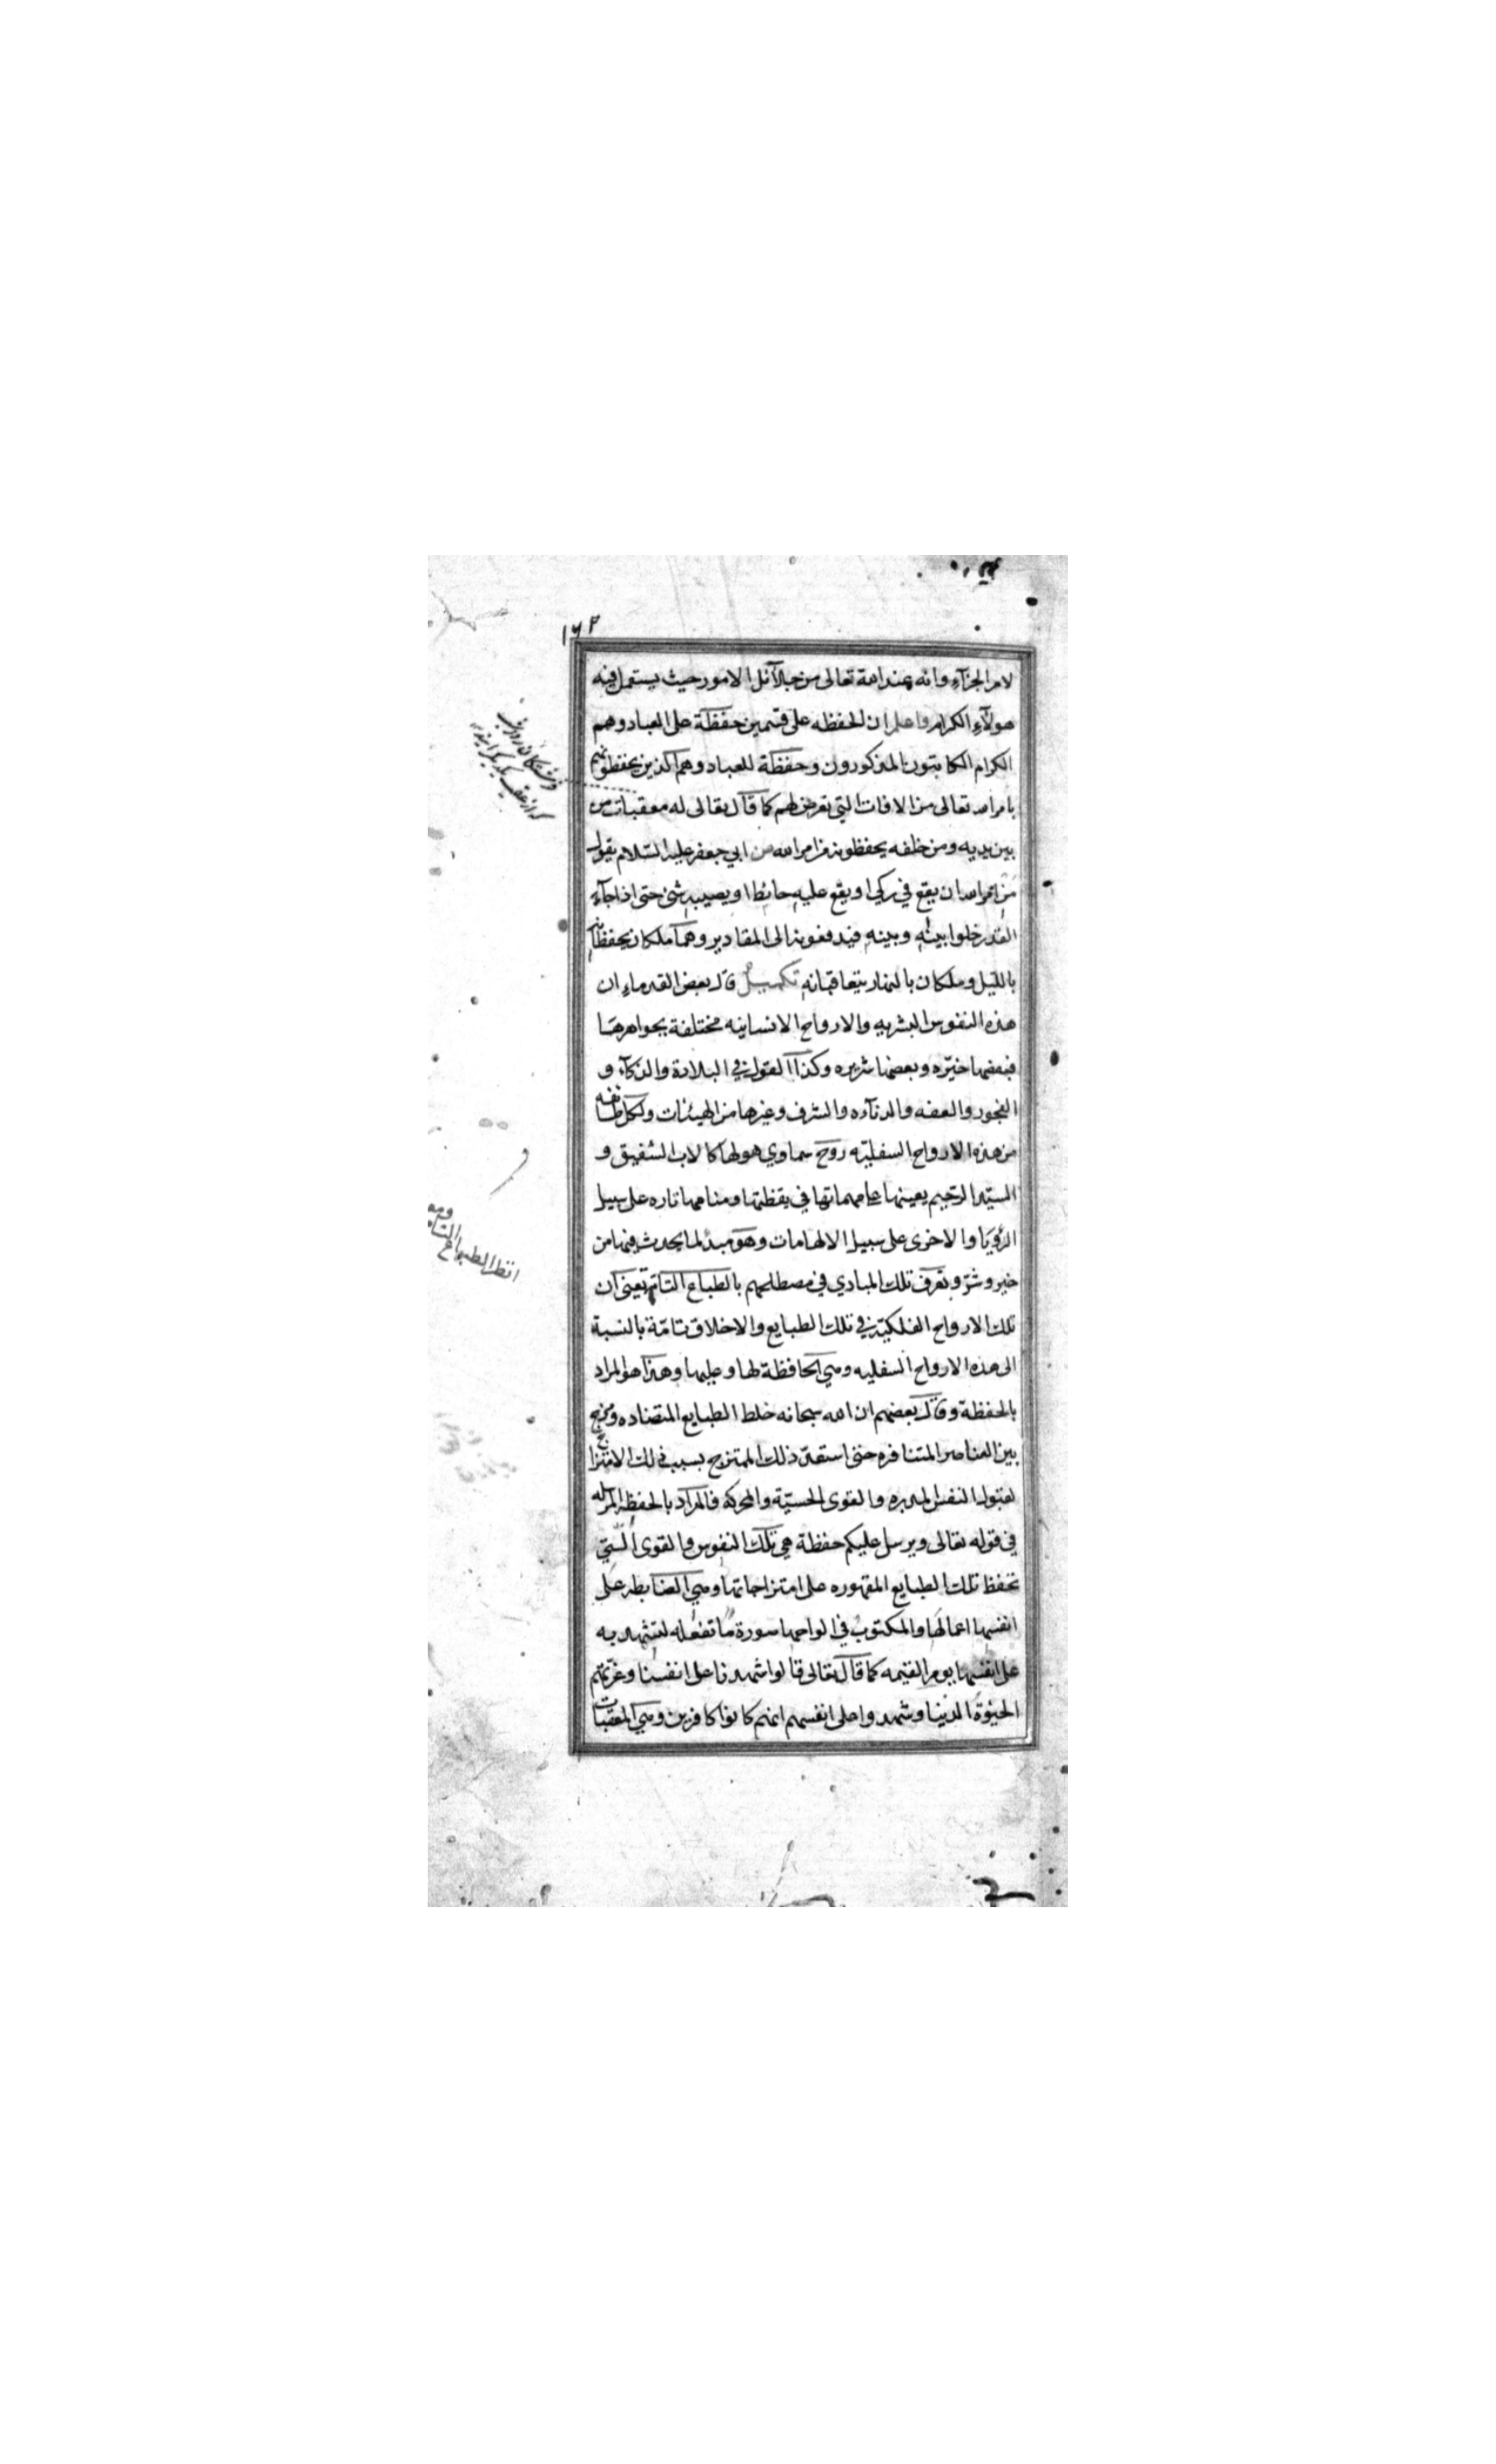 ١٦٢
لامر الجزآء وانه عند الله تعالى من جلآئل الامور حيث يستعمل فيه
هولآء الكرام واعلم ان الحفظه على قسمين حفظة على العباد وهم
الكرام الكاتبون المذكورون وحفظة للعباد وهم الذين يحفظونهم
بامر الله تعالى من الافات التي تعرض لهم كما قال تعالى له معقبات من
بين يديه ومن خلفه يحفظونه من امر الله عن ابي جعفر عليه السلام يقول
من امر الله ان يقع في ركي او يقع عليه حائط او يصيبه شئ حتى اذا جآء
القدر خلوا بينه وبينه فيدفعونه الى المقادير وهما ملكان يحفظانه
بالليل وملكان بالنهار يتعاقبانه تكميل قال بعض القدماء ان
هذه النفوس البشريه والارواح الانسانيه مختلفة بجواهرها
فبعضها خيّره وبعضها شريره وكذا القول في البلادة والذكآء و
الفجور والعفه والدنآءه والشرف وغيرها من الهيئات ولكل طائفه
من هذه الارواح السفليّه روح سماوي هو لها كالاب الشفيق و
السيّد الرحيم يعينها على مهماتها في يقظتها ومنامها تاره على سبيل
الرؤيا والاخرى على سبيل الالهامات وهو مبدأ لما يحدث فيها من
خير وشرّ وتعرف تلك المبادي في مصطلحهم بالطباع التام يعني ان
تلك الارواح الفلكيّة في تلك الطبايع والاخلاق تامّة بالنسبة
الى هذه الارواح السفليه وهي الحافظة لها وعليها وهذا هو المراد
بالحفظة وقال بعضهم ان الله سبحانه خلط الطبايع المتضاده ومزج
بين العناصر المتنافره حتى استعدّ ذلك الممتزج بسبب ذلك الامتزاج
لقبول النفس المدبره والقوى الحسيّة والمحركه فالمراد بالحفظه المرسله
في قوله تعالى ويرسل عليكم حفظة هي تلك النفوس والقوى الّتي
تحفظ تلك الطبايع المقهوره على امتزاجاتها وهي الضابطه على
انفسها اعمالها والمكتوب في الواحها سورة ما تفعله لتشهد به
على انفسها يوم القيمه كما قال تعالى قالوا شهدنا على انفسنا وغرّتهم
الحيوة الدنيا وشهدوا على انفسهم انهم كانوا كافرين وهي المعقبات
انظر الطباع التام